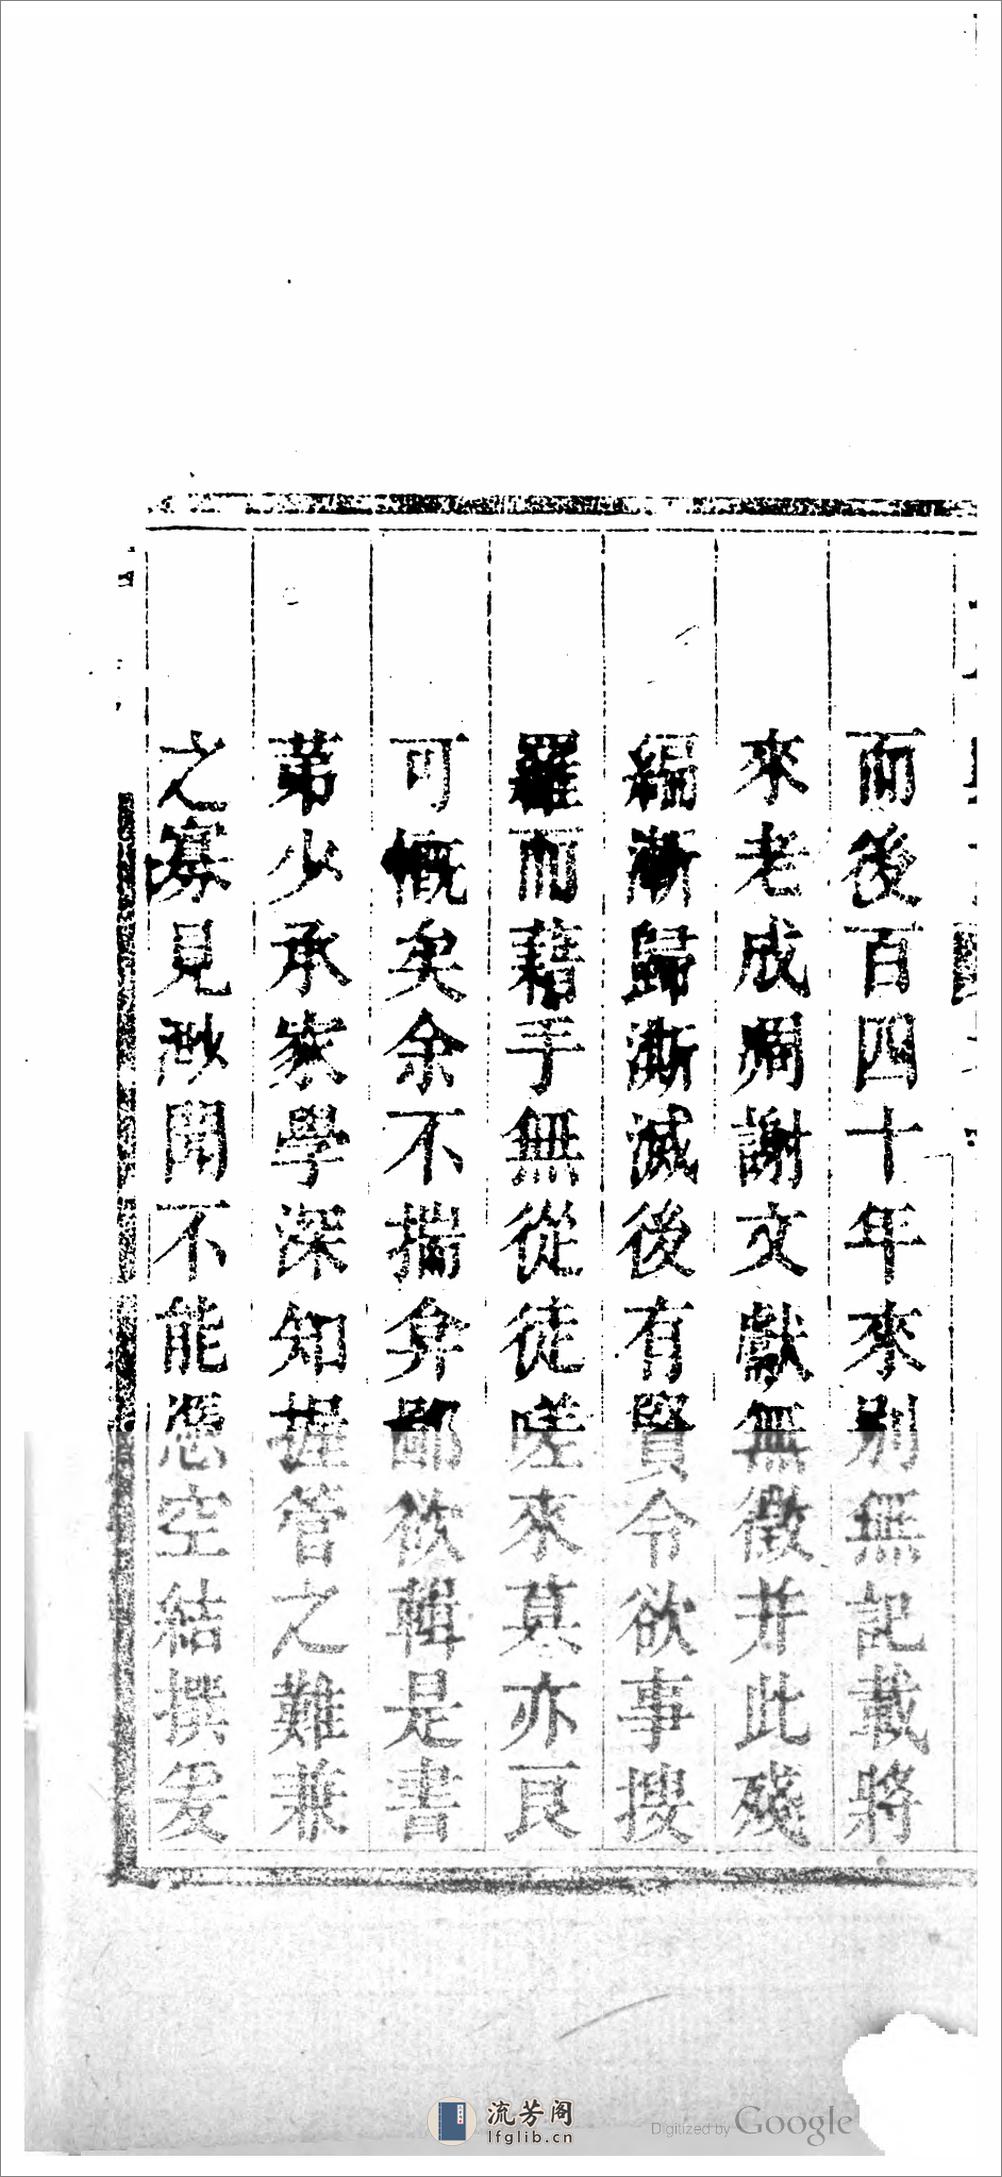 而後百四十年來別無記載將
來老成凋謝文獻無徵并此殘
編漸歸澌滅後有賢令欲事搜
羅而藉手無從徒嗟來莫亦良
可慨矣余不揣弇鄙欲輯是書
苐少承家學深知握管之難兼
之寡見尠聞不能憑空結撰爰
流芳阁
lfglib.cn
Digitized by Google